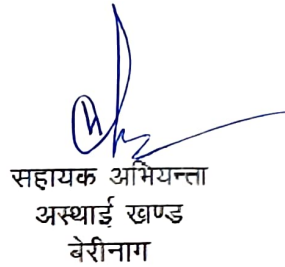 सहायक अभियन्ता
अस्थाई खण्ड
बेरीनाग